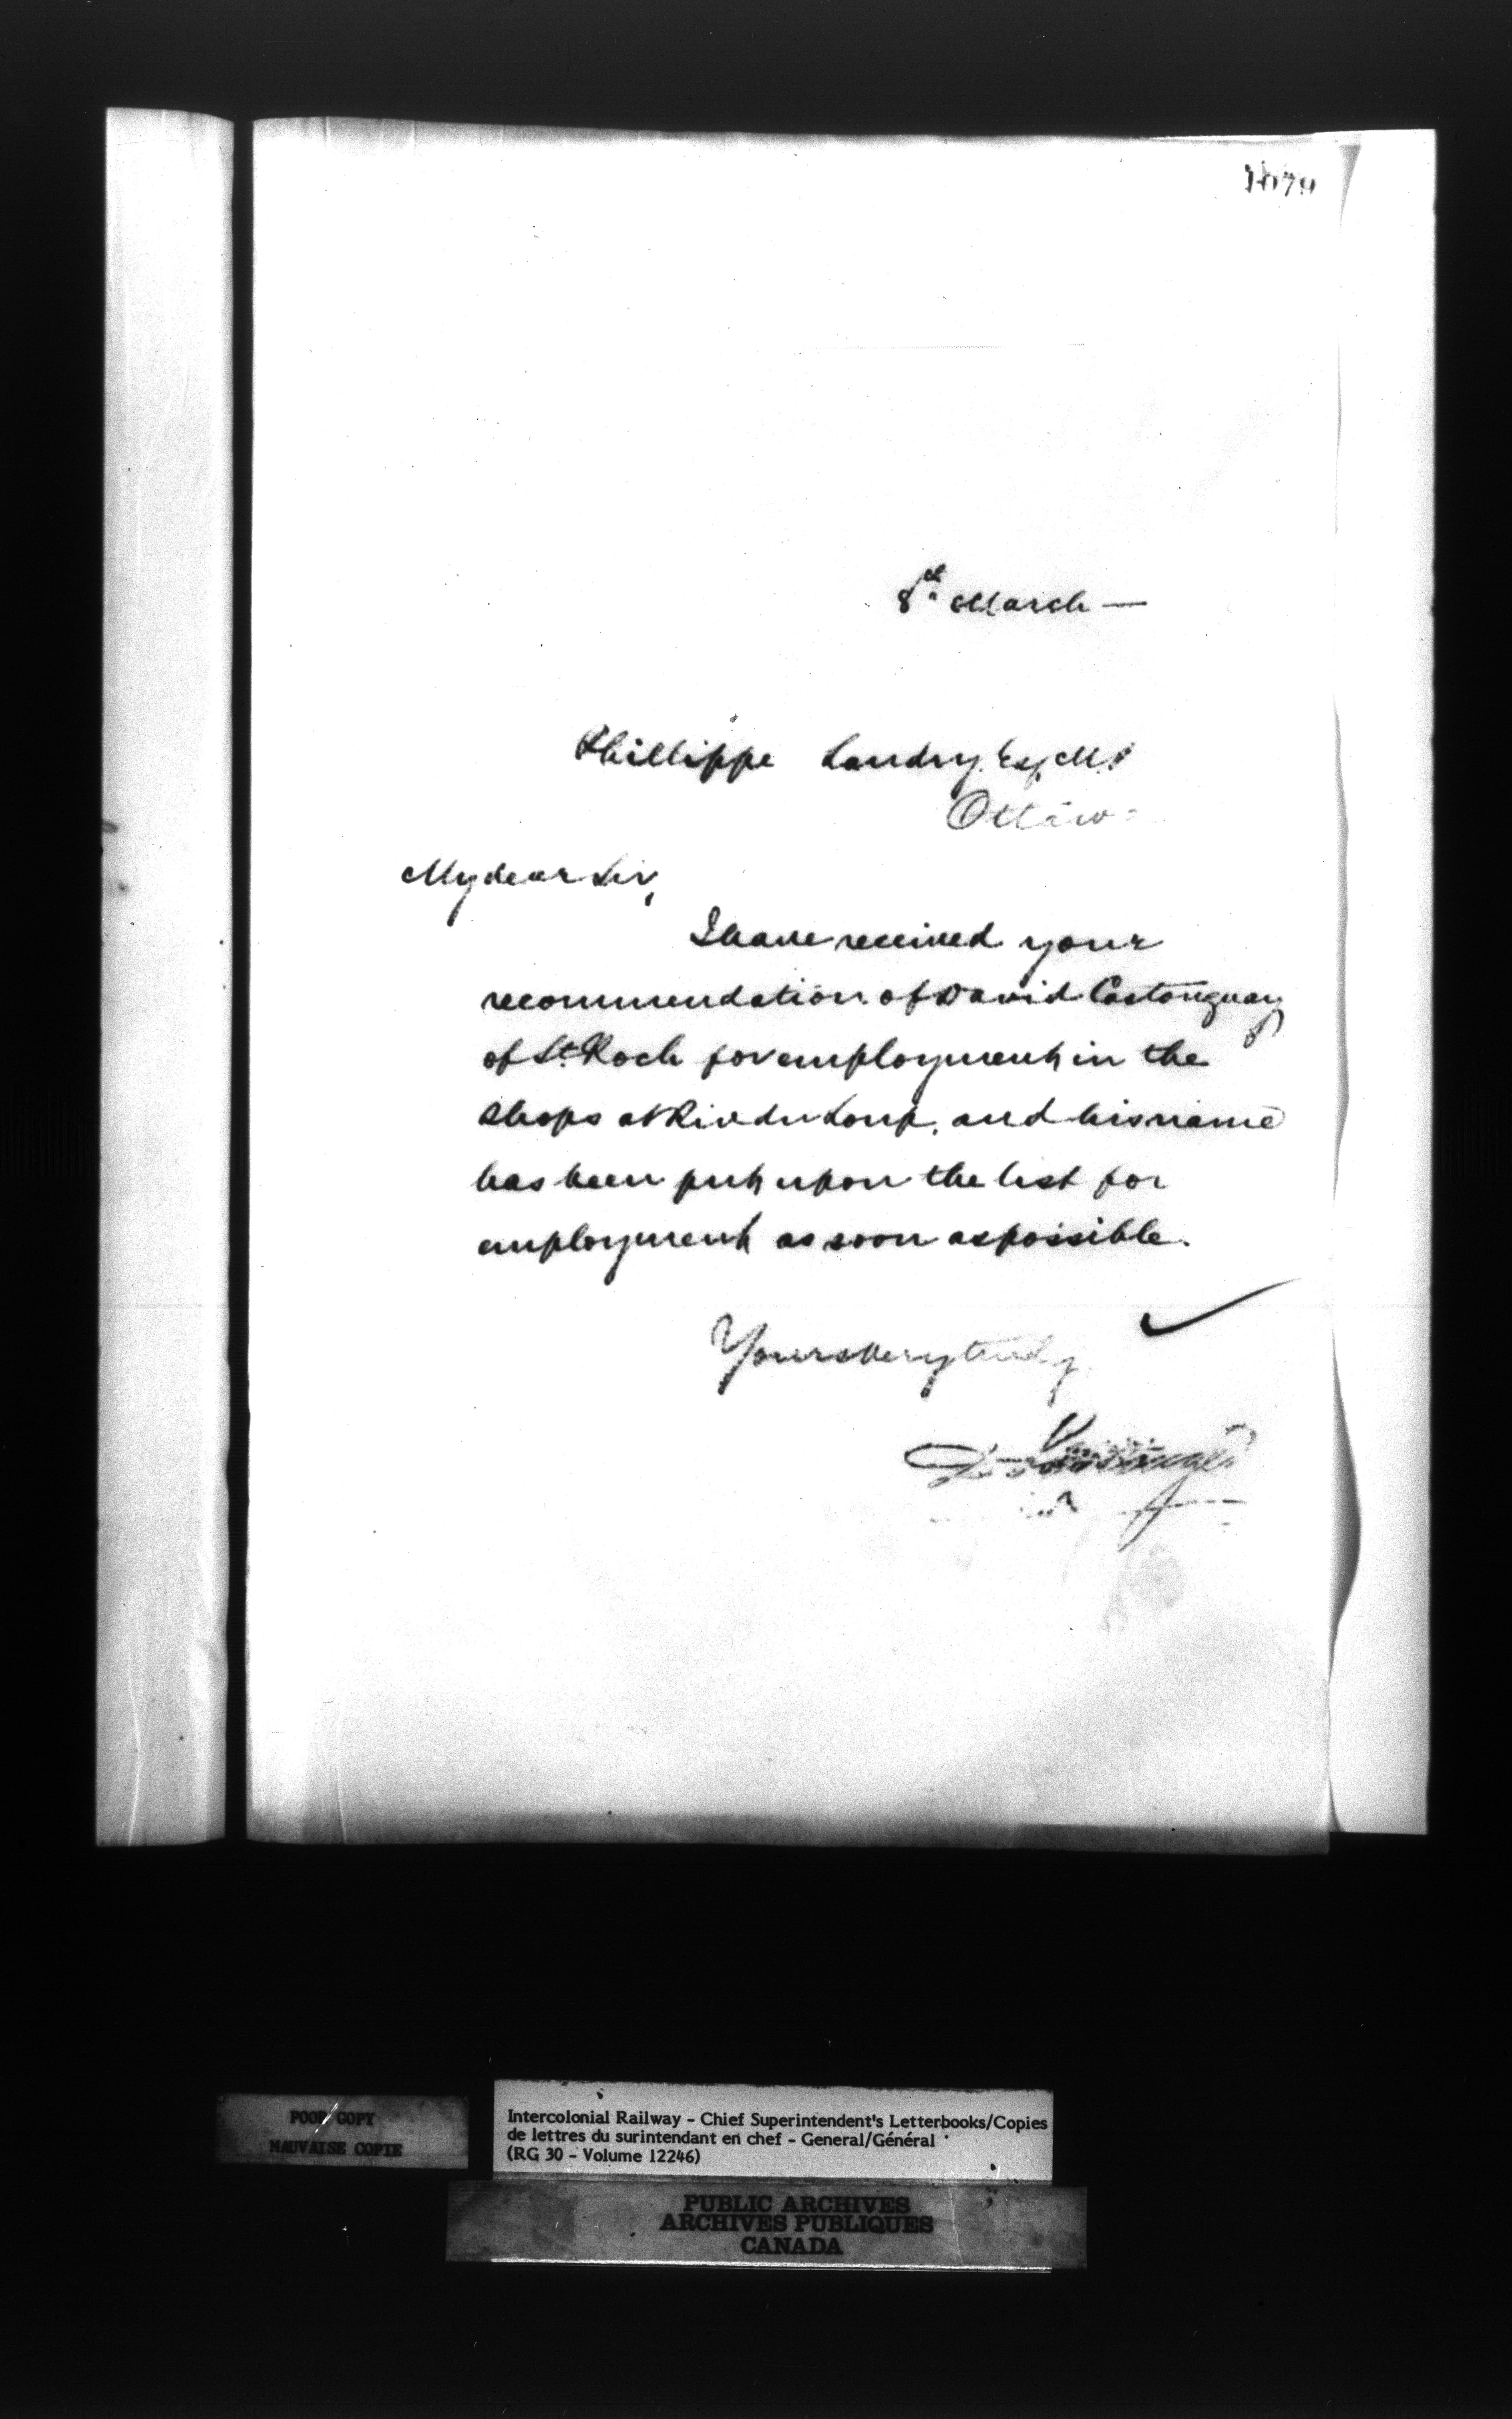 1079
8th March —
Phillippe Landry Esq. M.P
Ottawa
My dear Sir,
I have received your
recommendation of David Castonguay
of St. Roch for employment in the
shops at Riv du Loup, and his name
has been put upon the list for
employment as soon as possible.
Yours very truly
POOR COPY
MAUVAISE COPIE
Intercolonial Railway - Chief Superintendent's Letterbooks/Copies
de lettres du surintendant en chef - General/Général
(RG 30 - Volume 12246)
PUBLIC ARCHIVES
ARCHIVES PUBLIQUES
CANADA